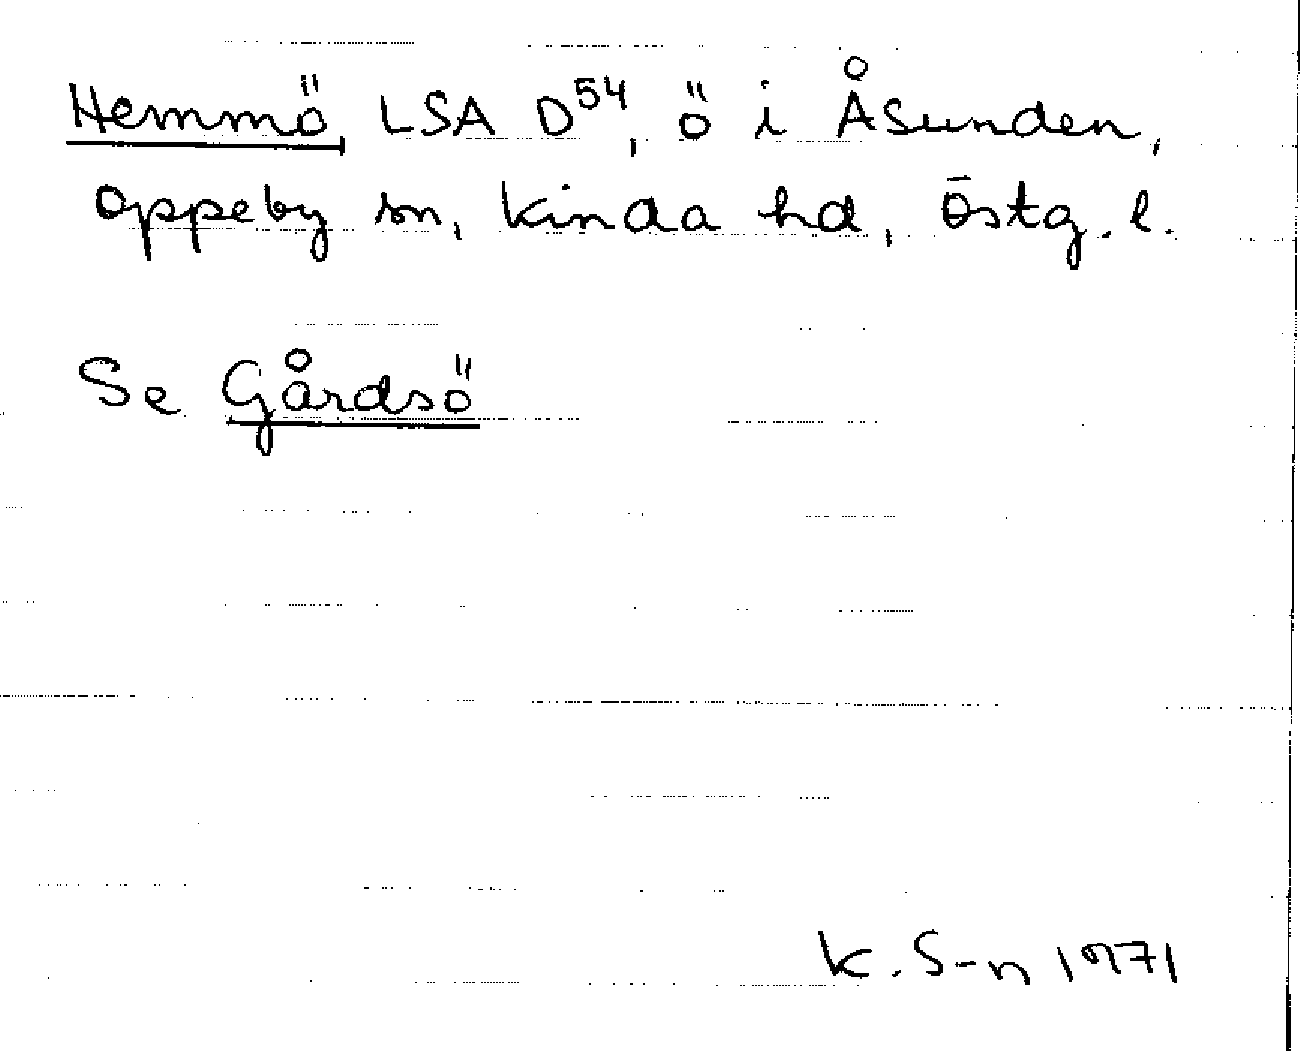 Hemmö, LSA D54, ö i Åsunden,
Oppeby sn, Kinda hd, Östg. l.
Se Gårdsö
K. S-n 1971